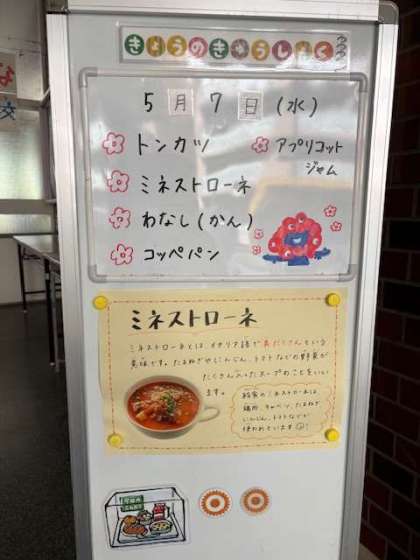 きょうのきゅうしょく
5月7日(水)
トンカツ
アプリコット
ジャム
ミネストローネ
わなし(かん)
コッペパン
ミネストローネ
ミネストローネとは、イタリア語で具だくさんという
意味です。たまねぎやにんじん、トマトなどの野菜が
たくさん入ったスープのことをいい
ます。
給食のミネストローネは、
鶏肉、キャベツ、たまねぎ
にんじん、トマトなどが
使われています